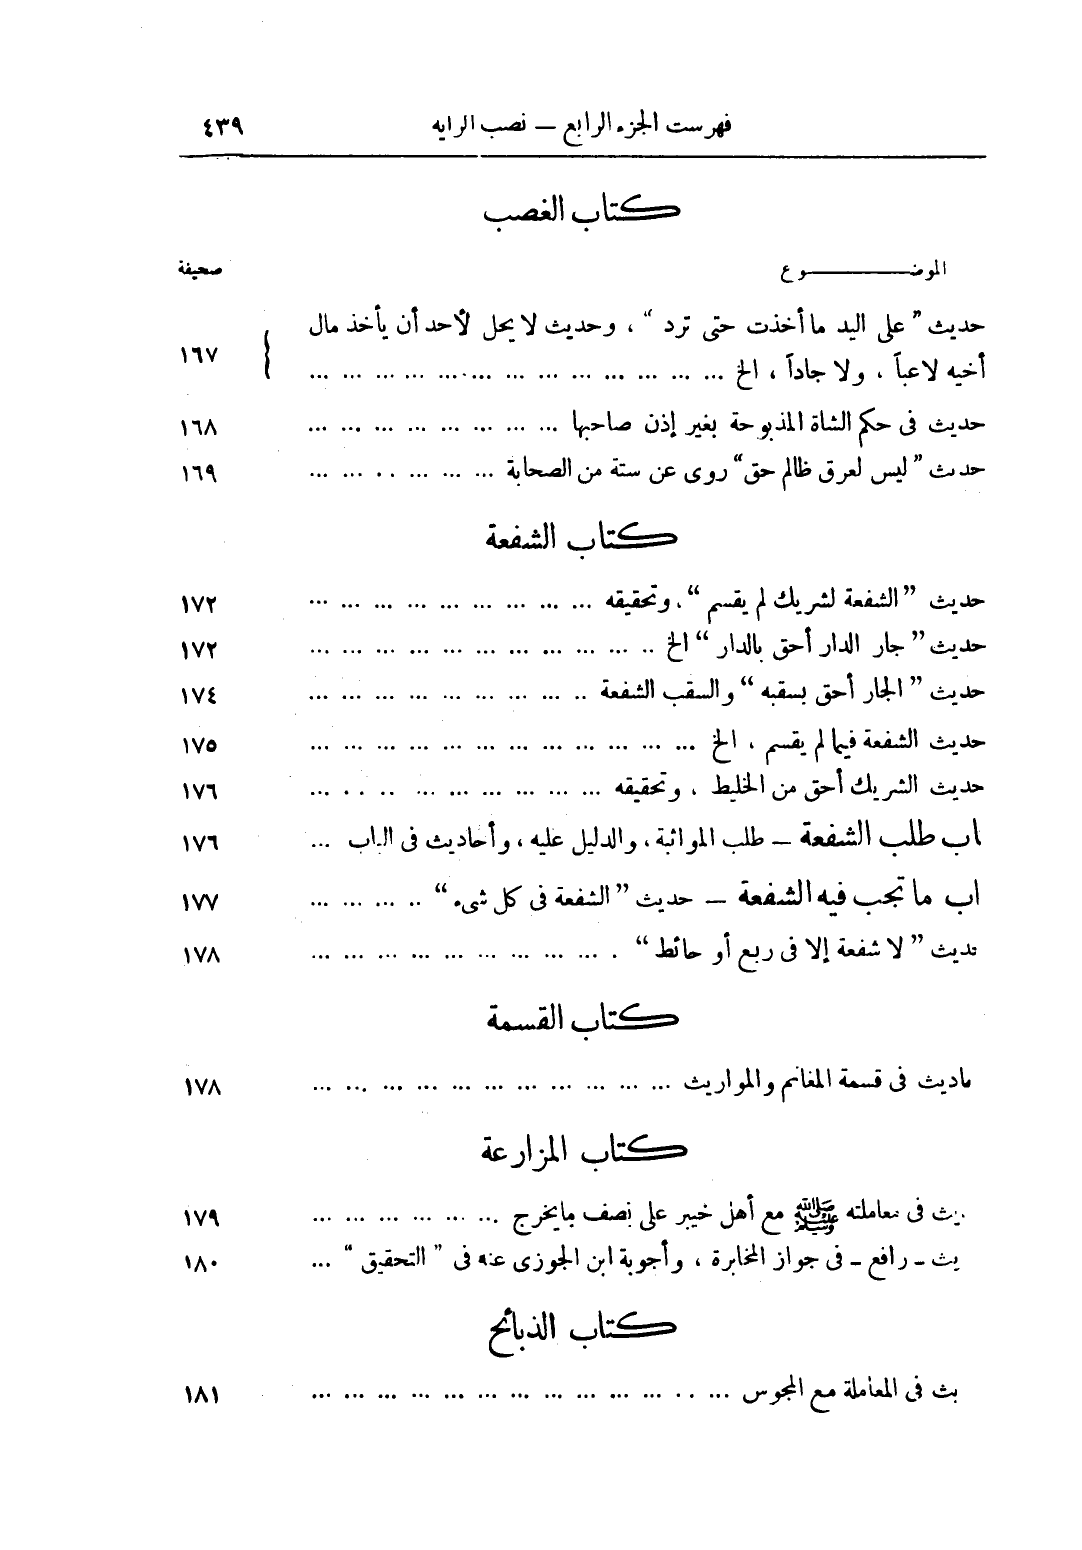 فهرست الجزء الرابع — نصب الرايه ٤٣٩
كتاب الغصب
الموضوع صحيفة
حديث " على اليد ما أخذت حتى ترد " ، وحديث لا يحل لأحد أن يأخذ مال
أخيه لاعباً ، ولا جاداً ، الخ ... ١٦٧
حديث فى حكم الشاة المذبوحة بغير إذن صاحبها ... ١٦٨
حديث " ليس لعرق ظالم حق " روى عن ستة من الصحابة ... ١٦٩
كتاب الشفعة
حديث " الشفعة لشريك لم يقسم " ، وتحقيقه ... ١٧٢
حديث " جار الدار أحق بالدار " الخ ... ١٧٢
حديث " الجار أحق بسقبه " والسقب الشفعة ... ١٧٤
حديث الشفعة فيما لم يقسم ، الخ ... ١٧٥
حديث الشريك أحق من الخليط ، وتحقيقه ... ١٧٦
اب طلب الشفعة — طلب المواثبة ، والدليل عليه ، وأحاديث فى الباب ... ١٧٦
اب ما تجب فيه الشفعة — حديث " الشفعة فى كل شىء " ... ١٧٧
ديث " لا شفعة إلا فى ربع أو حائط " ... ١٧٨
كتاب القسمة
اديث فى قسمة المغانم والمواريث ... ١٧٨
كتاب المزارعة
يث فى معاملته ﷺ مع أهل خيبر على نصف ما يخرج ... ١٧٩
يث - رافع - فى جواز المخابرة ، وأجوبة ابن الجوزى عنه فى " التحقيق " ... ١٨٠
كتاب الذبائح
يث فى المعاملة مع المجوس ... ١٨١